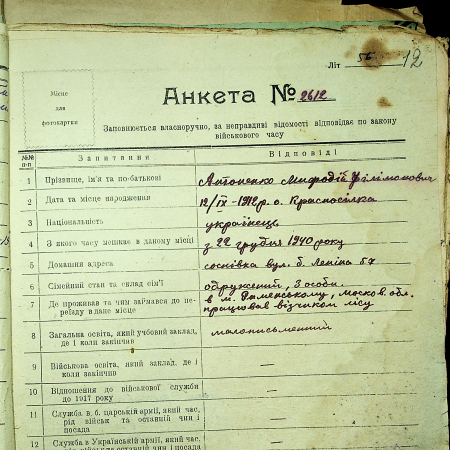 Літ 56 12
Місце
для
фотокартки
Анкета № 2612
Заповнюється власноручно, за неправдиві відомості відповідає по закону
військового часу
№№
п-п
Запитання
Відповіді
1 Прізвище, ім'я та по-батькові Антоненко Мифодій Філімонович
2 Дата та місце народження 12/IX - 1912 р. с. Красносілка
3 Національність українець
4 З якого часу мешкає в даному місці з 22 грудня 1940 року
5 Домашня адреса соснівка вул. б. Леніна
6 Сімейний стан та склад сім'ї одружений, 3 особи.
7 Де проживав та чим займався до пе-
реїзду в дане місце
в м. москов. обл.
працював візчиком лісу
8 Загальна освіта, який учбовий заклад,
де і коли закінчив
малописьменний
9 Військова освіта, який заклад, де і
коли закінчив —
10 Відношення до військової служби
до 1917 року —
11 Служба в б. царській армії, який час,
рід військ та останній чин і
посада —
12 Служба в Українській армії, який час,